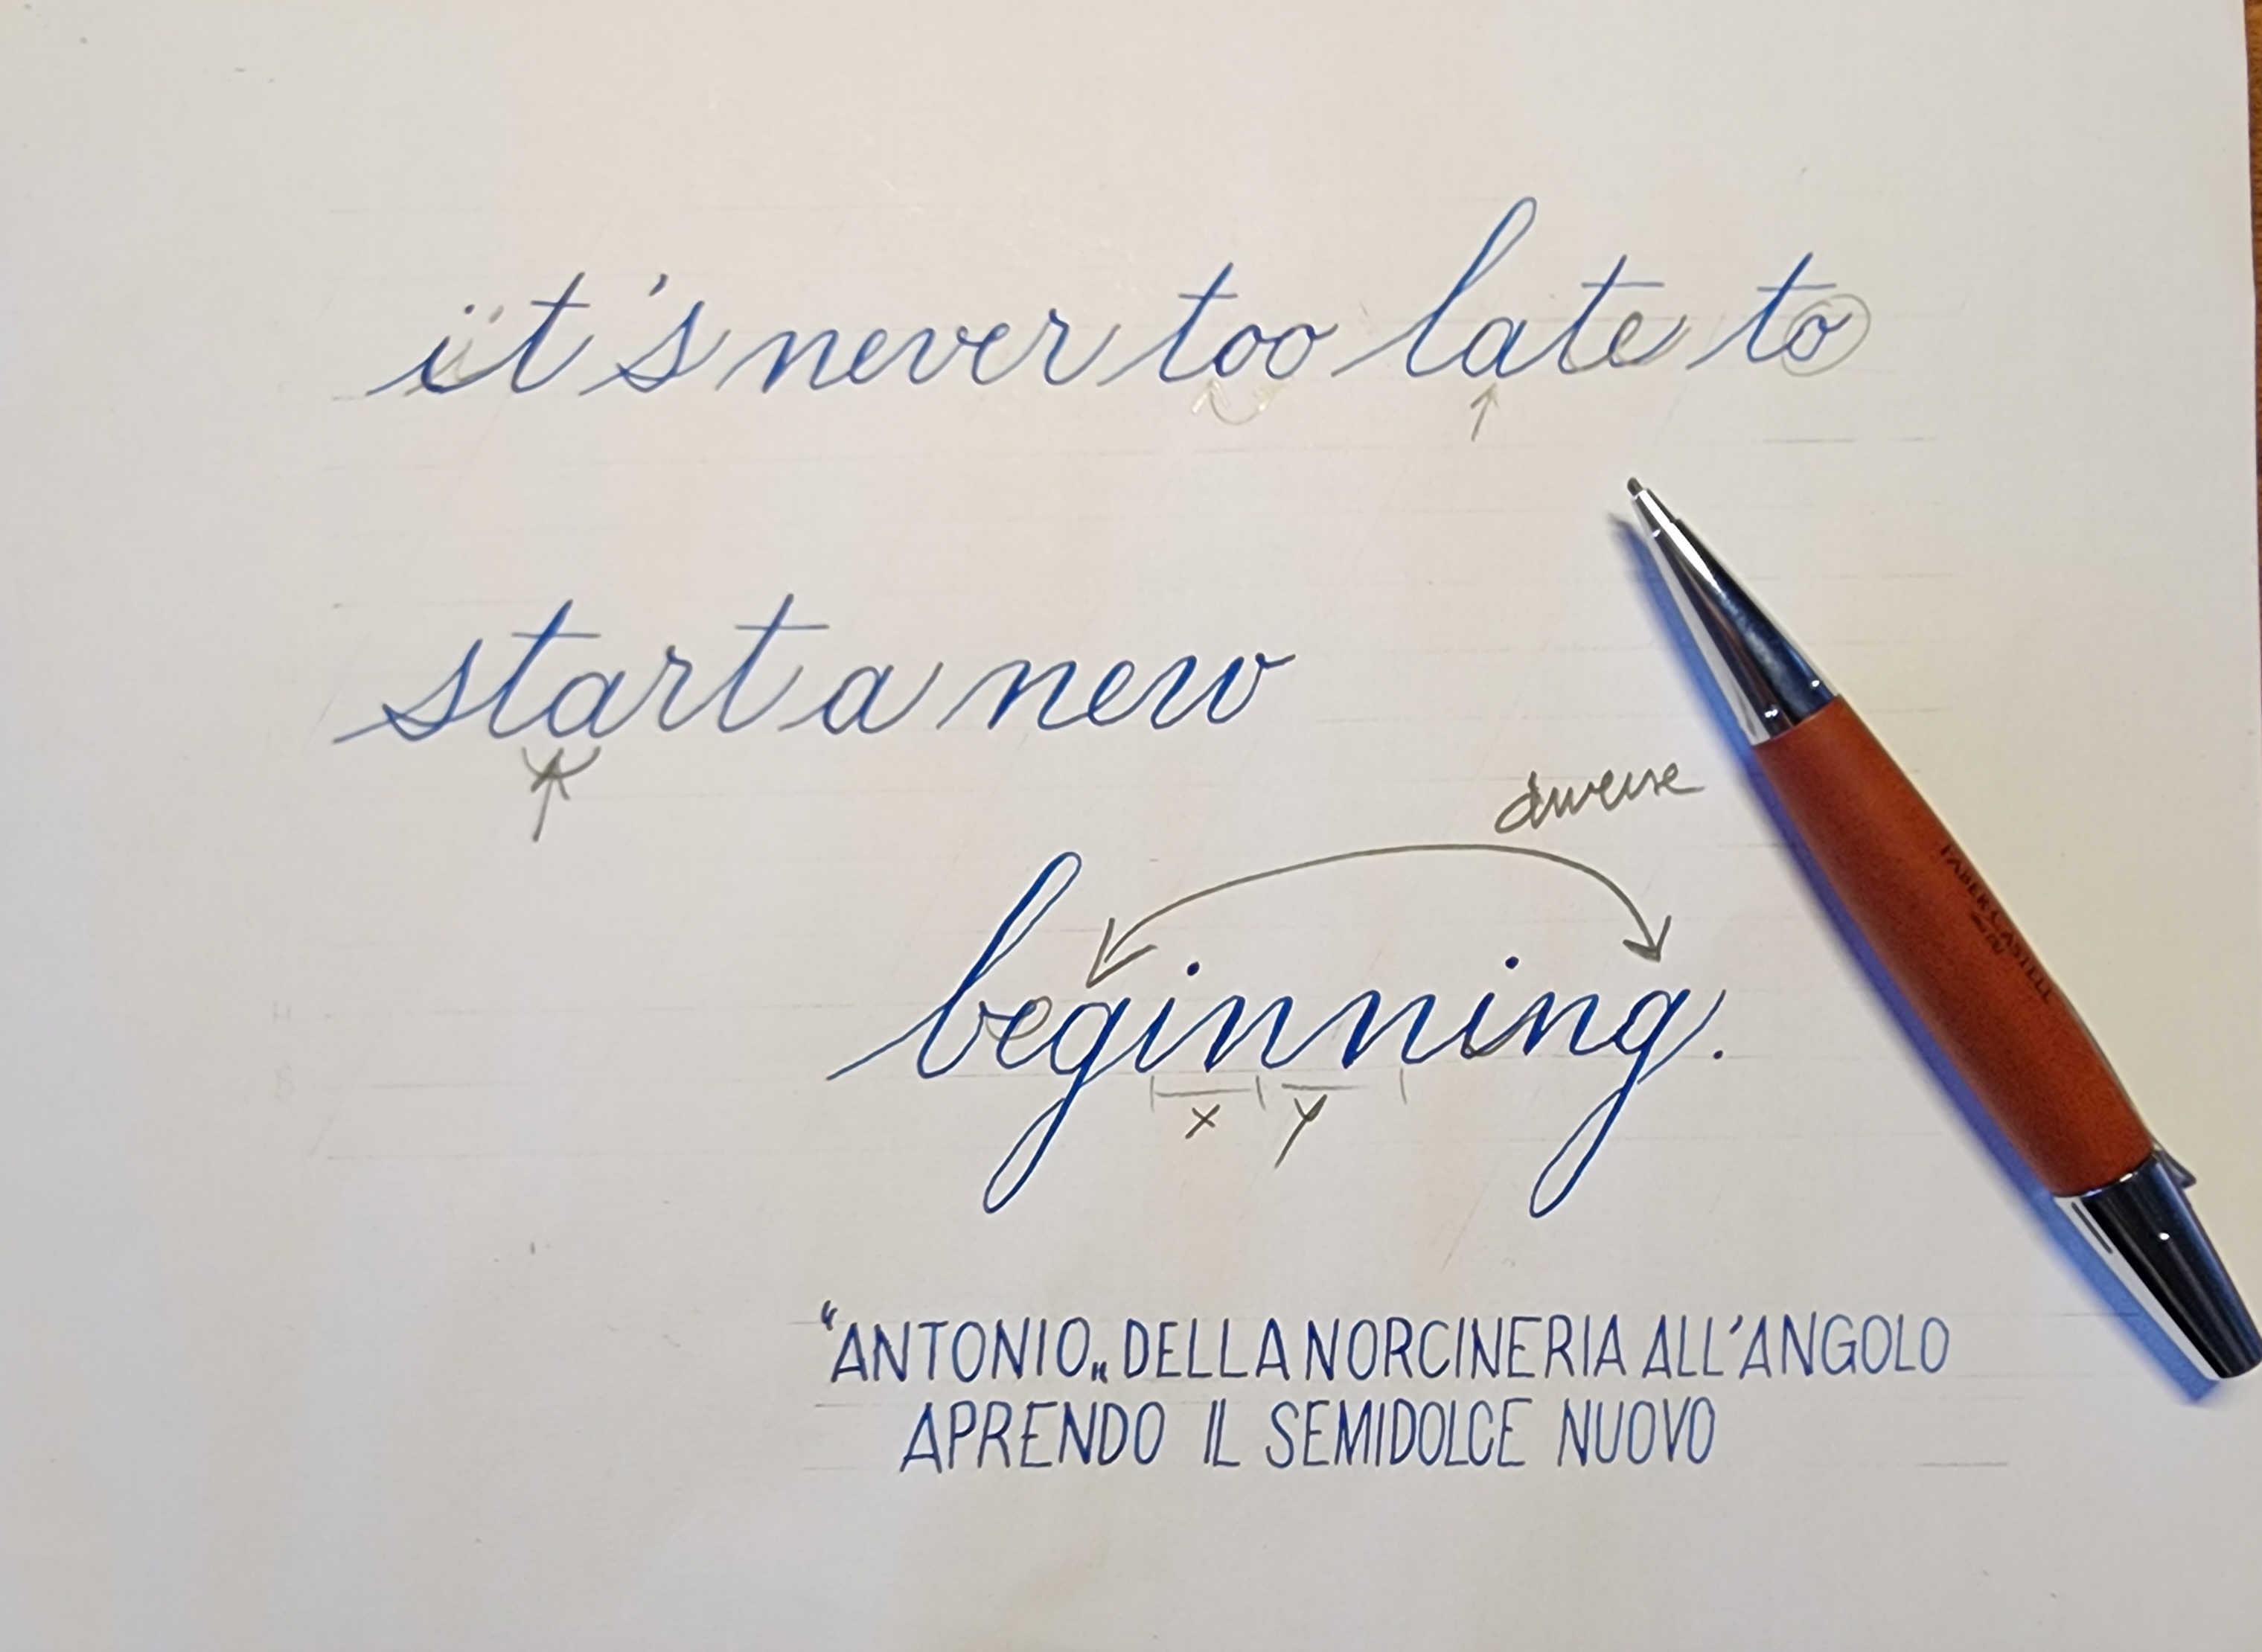 it's never too late to
start a new
diverse
beginning.
x y
"ANTONIO„ DELLA NORCINERIA ALL'ANGOLO
APRENDO IL SEMIDOLCE NUOVO
FABER-CASTELL